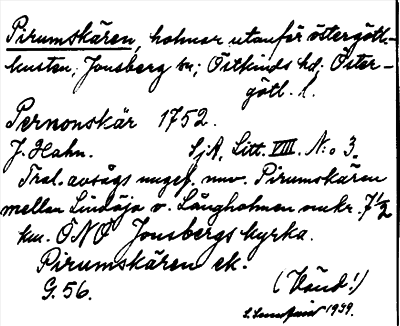 Pirumskären, holmar utanför östergötl.-
kusten; Jonsberg sn; Östkinds hd; Öster-
götl. l.
Pernonskär 1752.
J. Hahn. SjA, Litt. VIII. N:o 3.
Trol. avsågs ungef. nuv. Pirumskären
mellan Lindöja o. Långholmen omkr. 7 1/2
km. ONO Jonsbergs kyrka.
Pirumskären ek.
G. 56. (Vänd!)
1939.